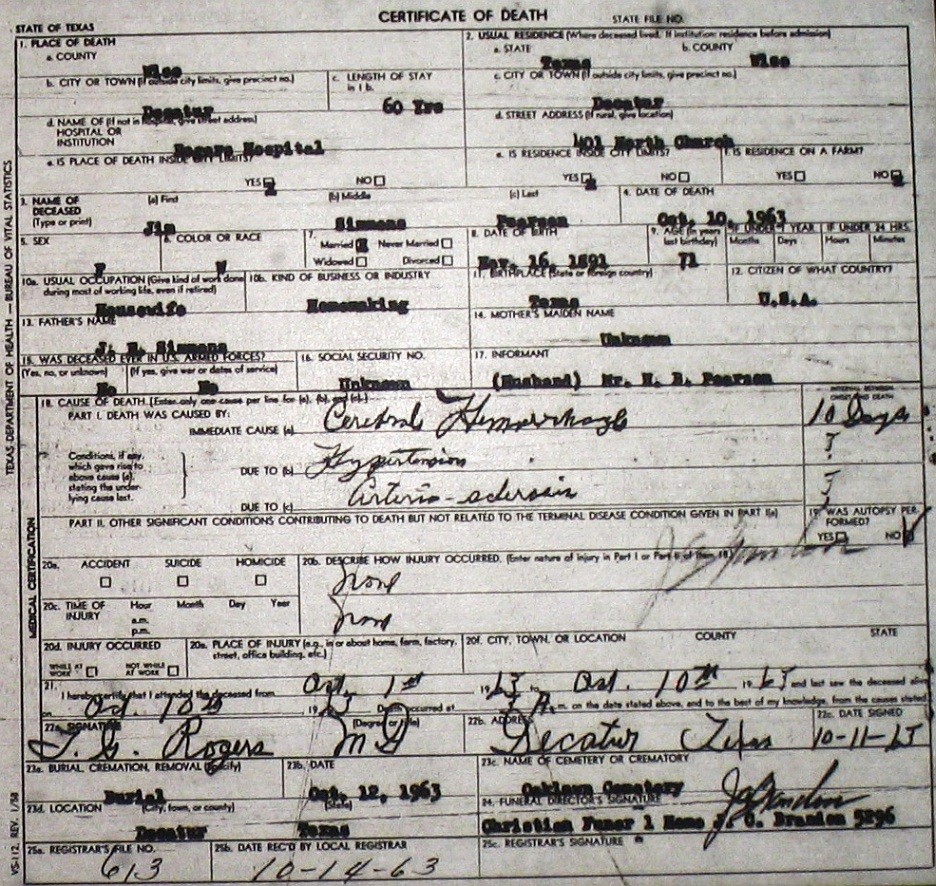 CERTIFICATE OF DEATH
STATE FILE NO.
STATE OF TEXAS
1. PLACE OF DEATH
a. COUNTY
Wise
2. USUAL RESIDENCE (Where deceased lived. If institution: residence before admission)
a. STATE
Texas
b. COUNTY
Wise
b. CITY OR TOWN (If outside city limits, give precinct no.)
Decatur
c. LENGTH OF STAY in 1 b.
60 Yrs
c. CITY OR TOWN (If outside city limits, give precinct no.)
Decatur
d. NAME OF (If not in hospital, give street address)
HOSPITAL OR
INSTITUTION
Hospital
d. STREET ADDRESS (If rural, give location)
401 North Church
e. IS PLACE OF DEATH INSIDE CITY LIMITS?
YES NO
e. IS RESIDENCE INSIDE CITY LIMITS?
YES NO
f. IS RESIDENCE ON A FARM?
YES NO
3. NAME OF DECEASED
(Type or print)
(a) First
Jim
(b) Middle
Simmons
(c) Last
Pearson
4. DATE OF DEATH
Oct. 10, 1963
5. SEX
F
6. COLOR OR RACE
W
7.
Married Never Married
Widowed Divorced
8. DATE OF BIRTH
Nov. 16, 1891
9. AGE (In years last birthday)
71
IF UNDER 1 YEAR
Months Days
IF UNDER 24 HRS.
Hours Minutes
10a. USUAL OCCUPATION (Give kind of work done
during most of working life, even if retired)
Housewife
10b. KIND OF BUSINESS OR INDUSTRY
Homemaking
11. BIRTHPLACE (State or foreign country)
Texas
12. CITIZEN OF WHAT COUNTRY?
U.S.A.
13. FATHER'S NAME
J. Simmons
14. MOTHER'S MAIDEN NAME
Unknown
15. WAS DECEASED EVER IN U.S. ARMED FORCES?
(Yes, no, or unknown)
No
(If yes, give war or dates of service)
No
16. SOCIAL SECURITY NO.
Unknown
17. INFORMANT
(Husband) Mr. Pearson
18. CAUSE OF DEATH. [Enter only one cause per line for (a), (b), and (c).]
INTERVAL BETWEEN ONSET AND DEATH
PART I. DEATH WAS CAUSED BY:
IMMEDIATE CAUSE (a)
Cerebral Hemorrhage
10 Days
Conditions, if any,
which gave rise to
above cause (a),
stating the under-
lying cause last.
DUE TO (b)
Hypertension
?
DUE TO (c)
Arterio-sclerosis
?
PART II. OTHER SIGNIFICANT CONDITIONS CONTRIBUTING TO DEATH BUT NOT RELATED TO THE TERMINAL DISEASE CONDITION GIVEN IN PART I(a)
19. WAS AUTOPSY PER-
FORMED?
YES NO
20a.
ACCIDENT SUICIDE HOMICIDE
20b. DESCRIBE HOW INJURY OCCURRED. (Enter nature of injury in Part I or Part II of Item 18)
None
20c. TIME OF INJURY
Hour Month Day Year
a.m.
p.m.
None
20d. INJURY OCCURRED
WHILE AT WORK
NOT WHILE AT WORK
20e. PLACE OF INJURY (e.g., in or about home, farm, factory,
street, office building, etc.)
20f. CITY, TOWN, OR LOCATION
COUNTY
STATE
21.
I hereby certify that I attended the deceased from Oct. 1st 1963 to Oct. 10th 1963 and last saw the deceased alive
on Oct. 10th 1963 Death occurred at m. on the date stated above, and to the best of my knowledge, from the causes stated.
22a. SIGNATURE
Rogers
(Degree or title)
MD
22b. ADDRESS
Decatur Texas
22c. DATE SIGNED
10-11-63
23a. BURIAL, CREMATION, REMOVAL (Specify)
Burial
23b. DATE
Oct. 12, 1963
23c. NAME OF CEMETERY OR CREMATORY
Oaklawn Cemetery
23d. LOCATION
(City, town, or county)
Decatur
(State)
Texas
24. FUNERAL DIRECTOR'S SIGNATURE
Christian Funer l Home J. G. Brandon 5296
25a. REGISTRAR'S FILE NO.
613
25b. DATE REC'D BY LOCAL REGISTRAR
10-14-63
25c. REGISTRAR'S SIGNATURE
MEDICAL CERTIFICATION
TEXAS DEPARTMENT OF HEALTH — BUREAU OF VITAL STATISTICS
VS-112, REV. 1/58